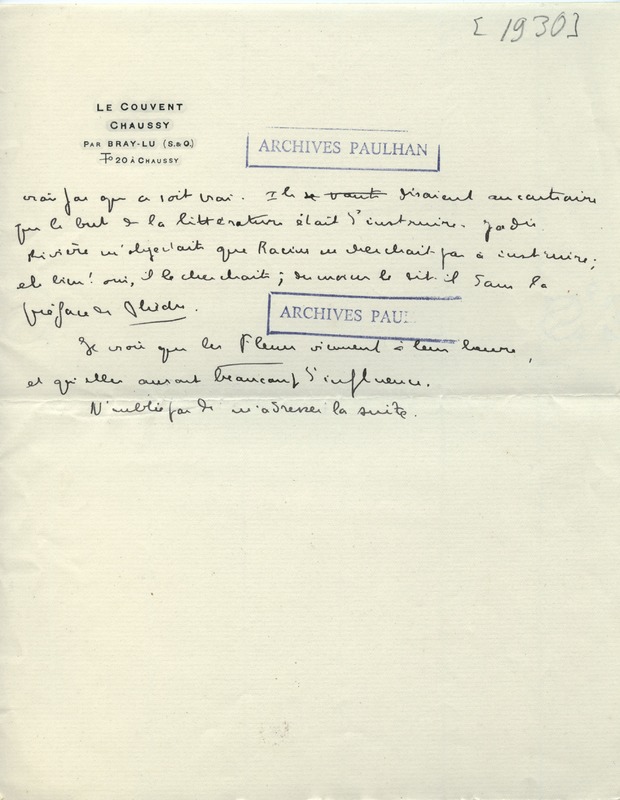 [1930]
LE COUVENT
CHAUSSY
PAR BRAY-LU (S.&O.)
To 20 À CHAUSSY
ARCHIVES PAULHAN
vrai pas que ce soit vrai. Ils se vante disaient au contraire
que le but de la littérature était d'instruire. Jadis
Rivière m'objectait que Racine ne cherchait pas à instruire;
eh bien! oui, il le cherchait; du moins le dit-il dans la
préface de Phèdre.
ARCHIVES PAUL
Je crois que les Fleurs viennent à leur heure,
et qu'elles auront beaucoup d'influence.
N'oublie pas de m'adresser la suite.